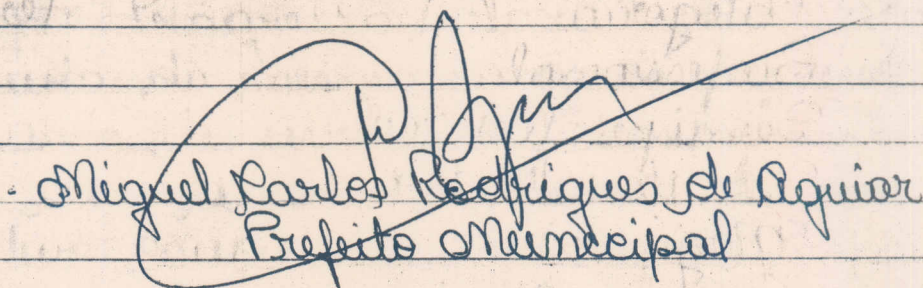 Miguel Carlos Rodrigues de Aguiar
Prefeito Municipal